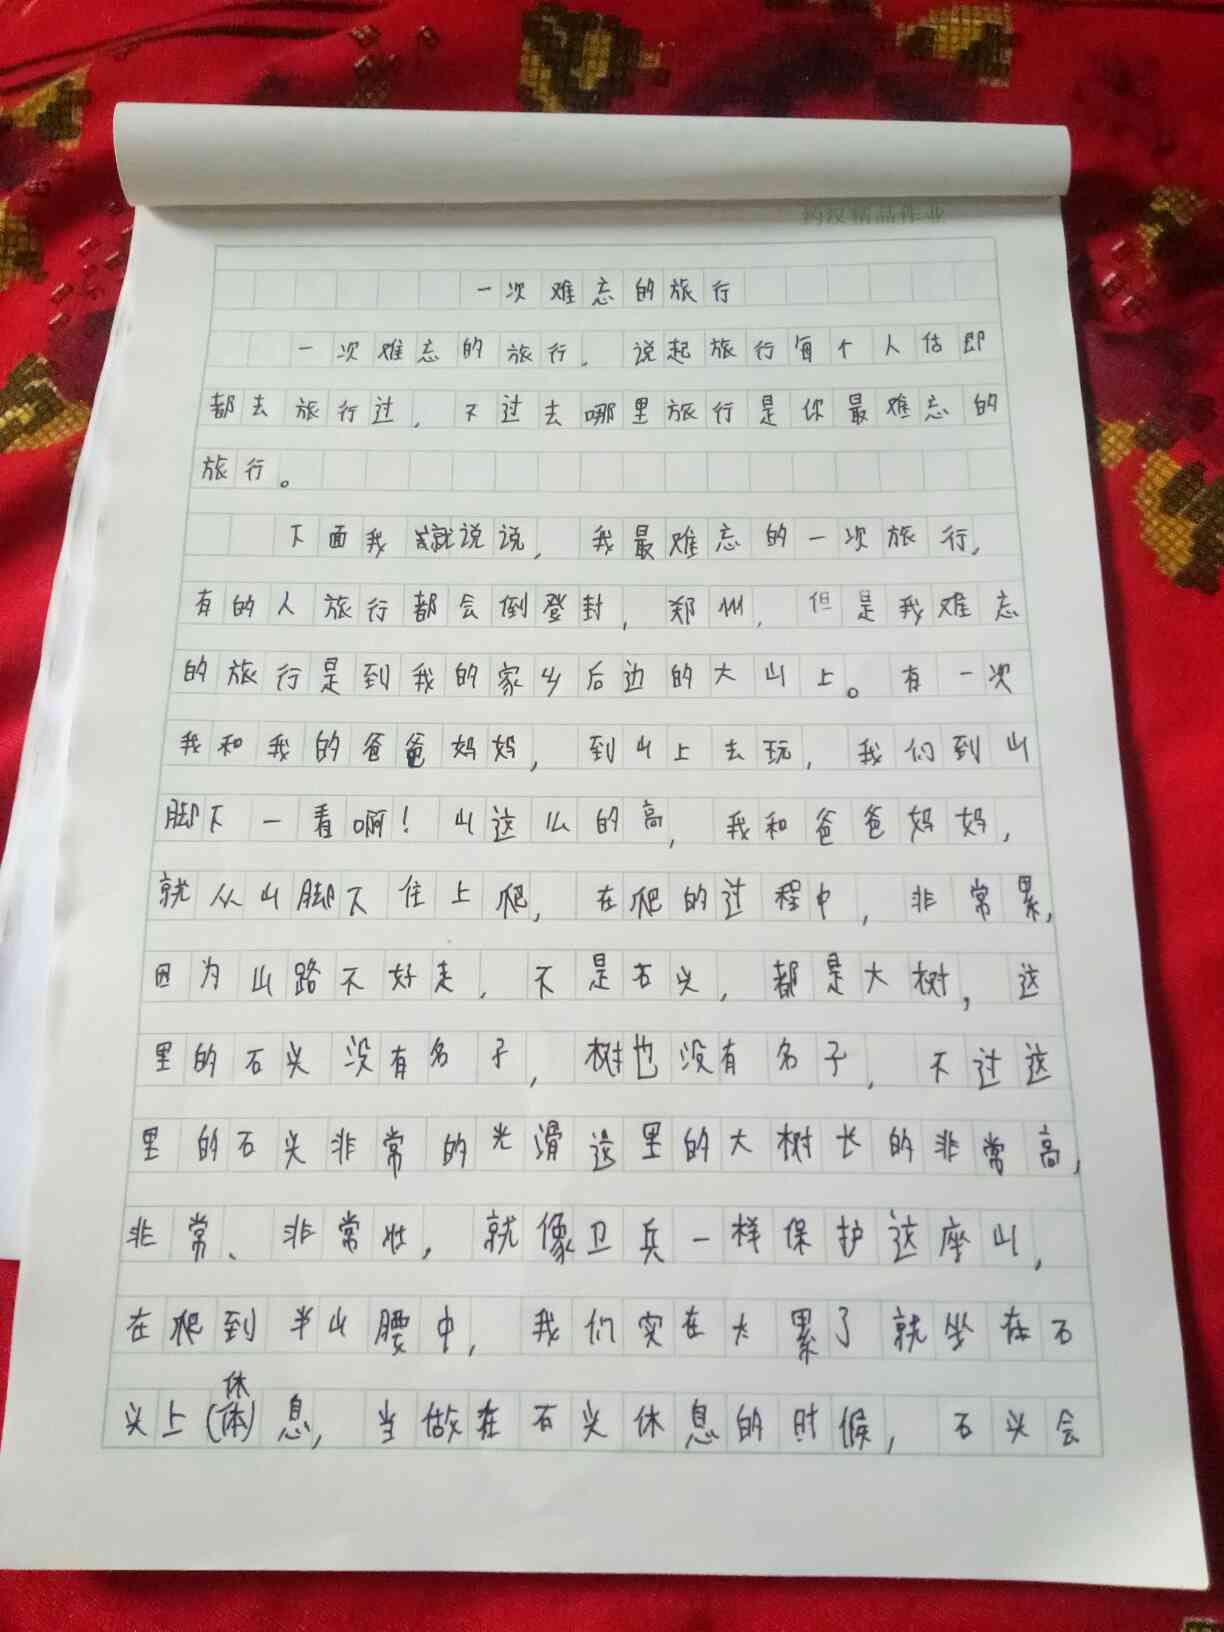 精品作业
一次难忘的旅行
一次难忘的旅行，说起旅行每个人估即
都去旅行过，不过去哪里旅行是你最难忘的
旅行。
下面我就说说，我最难忘的一次旅行，
有的人旅行都会倒登封，郑州，但是我难忘
的旅行是到我的家乡后边的大山上。有一次
我和我的爸爸妈妈，到山上去玩，我们到山
脚下一看啊！山这么的高，我和爸爸妈妈，
就从山脚下住上爬，在爬的过程中，非常累，
因为山路不好走，不是石头，都是大树，这
里的石头没有名子，树也没有名子，不过这
里的石头非常的光滑这里的大树长的非常高，
非常、非常壮，就像卫兵一样保护这座山，
在爬到半山腰中，我们实在太累了就坐在石
头上(体)休息，当做在石头休息的时候，石头会